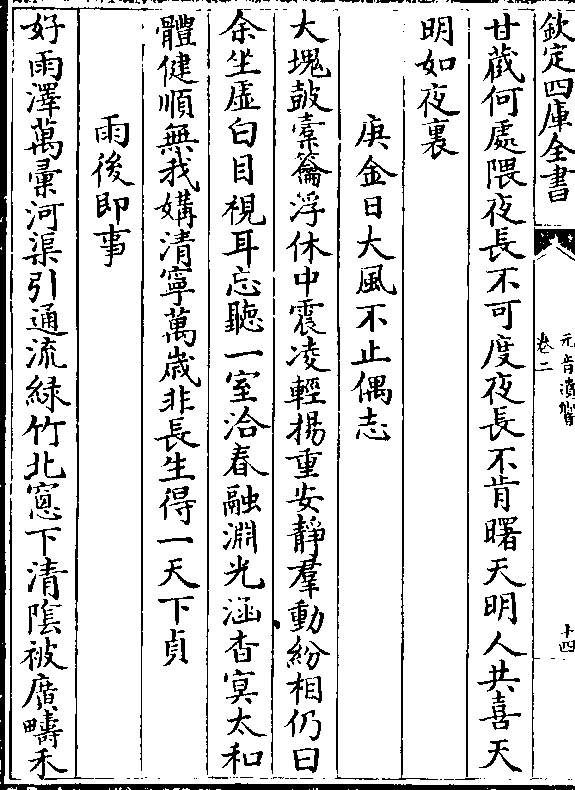 欽定四庫全書
卷二
十四
甘蕆何處隈夜長不可度夜長不肯曙天明人共喜天
明如夜裏
庚金日大風不止偶志
大塊鼓橐籥浮休中震凌輕揚重安靜羣動紛相仍曰
余坐虛白目視耳忘聽一室洽春融淵光涵杳冥太和
體健順無我媾清寧萬歲非長生得一天下貞
雨後即事
好雨澤萬彙河渠引通流緑竹北窻下清隂被廣疇禾